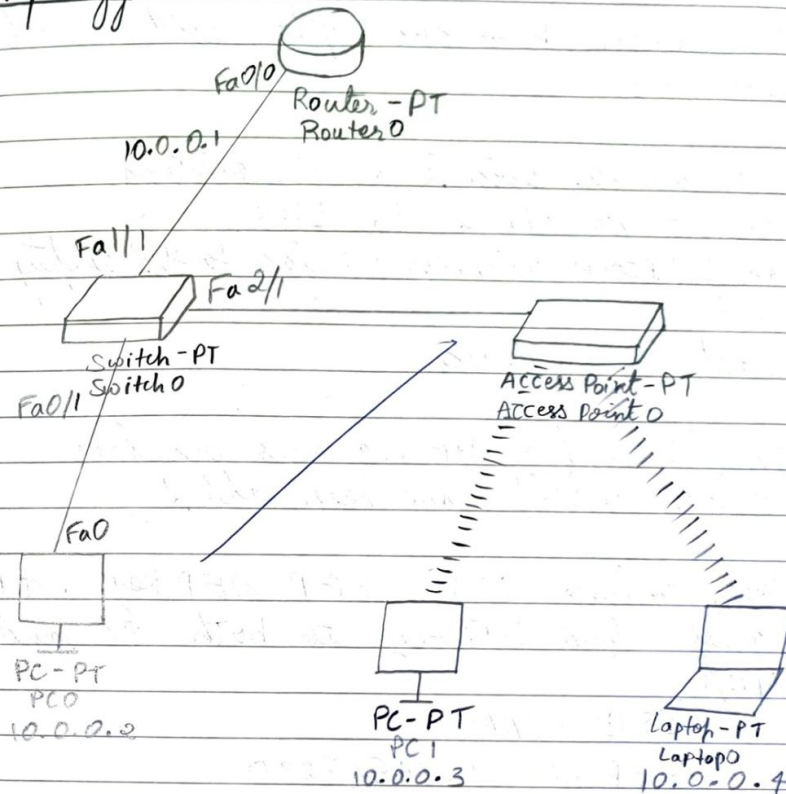 Fa0/0
Router-PT
Router0
10.0.0.1
Fa1/1
Fa2/1
Switch-PT
Switch0
Fa0/1
Access Point-PT
Access Point0
Fa0
PC-PT
PC0
10.0.0.2
PC-PT
PC1
10.0.0.3
Laptop-PT
Laptop0
10.0.0.4